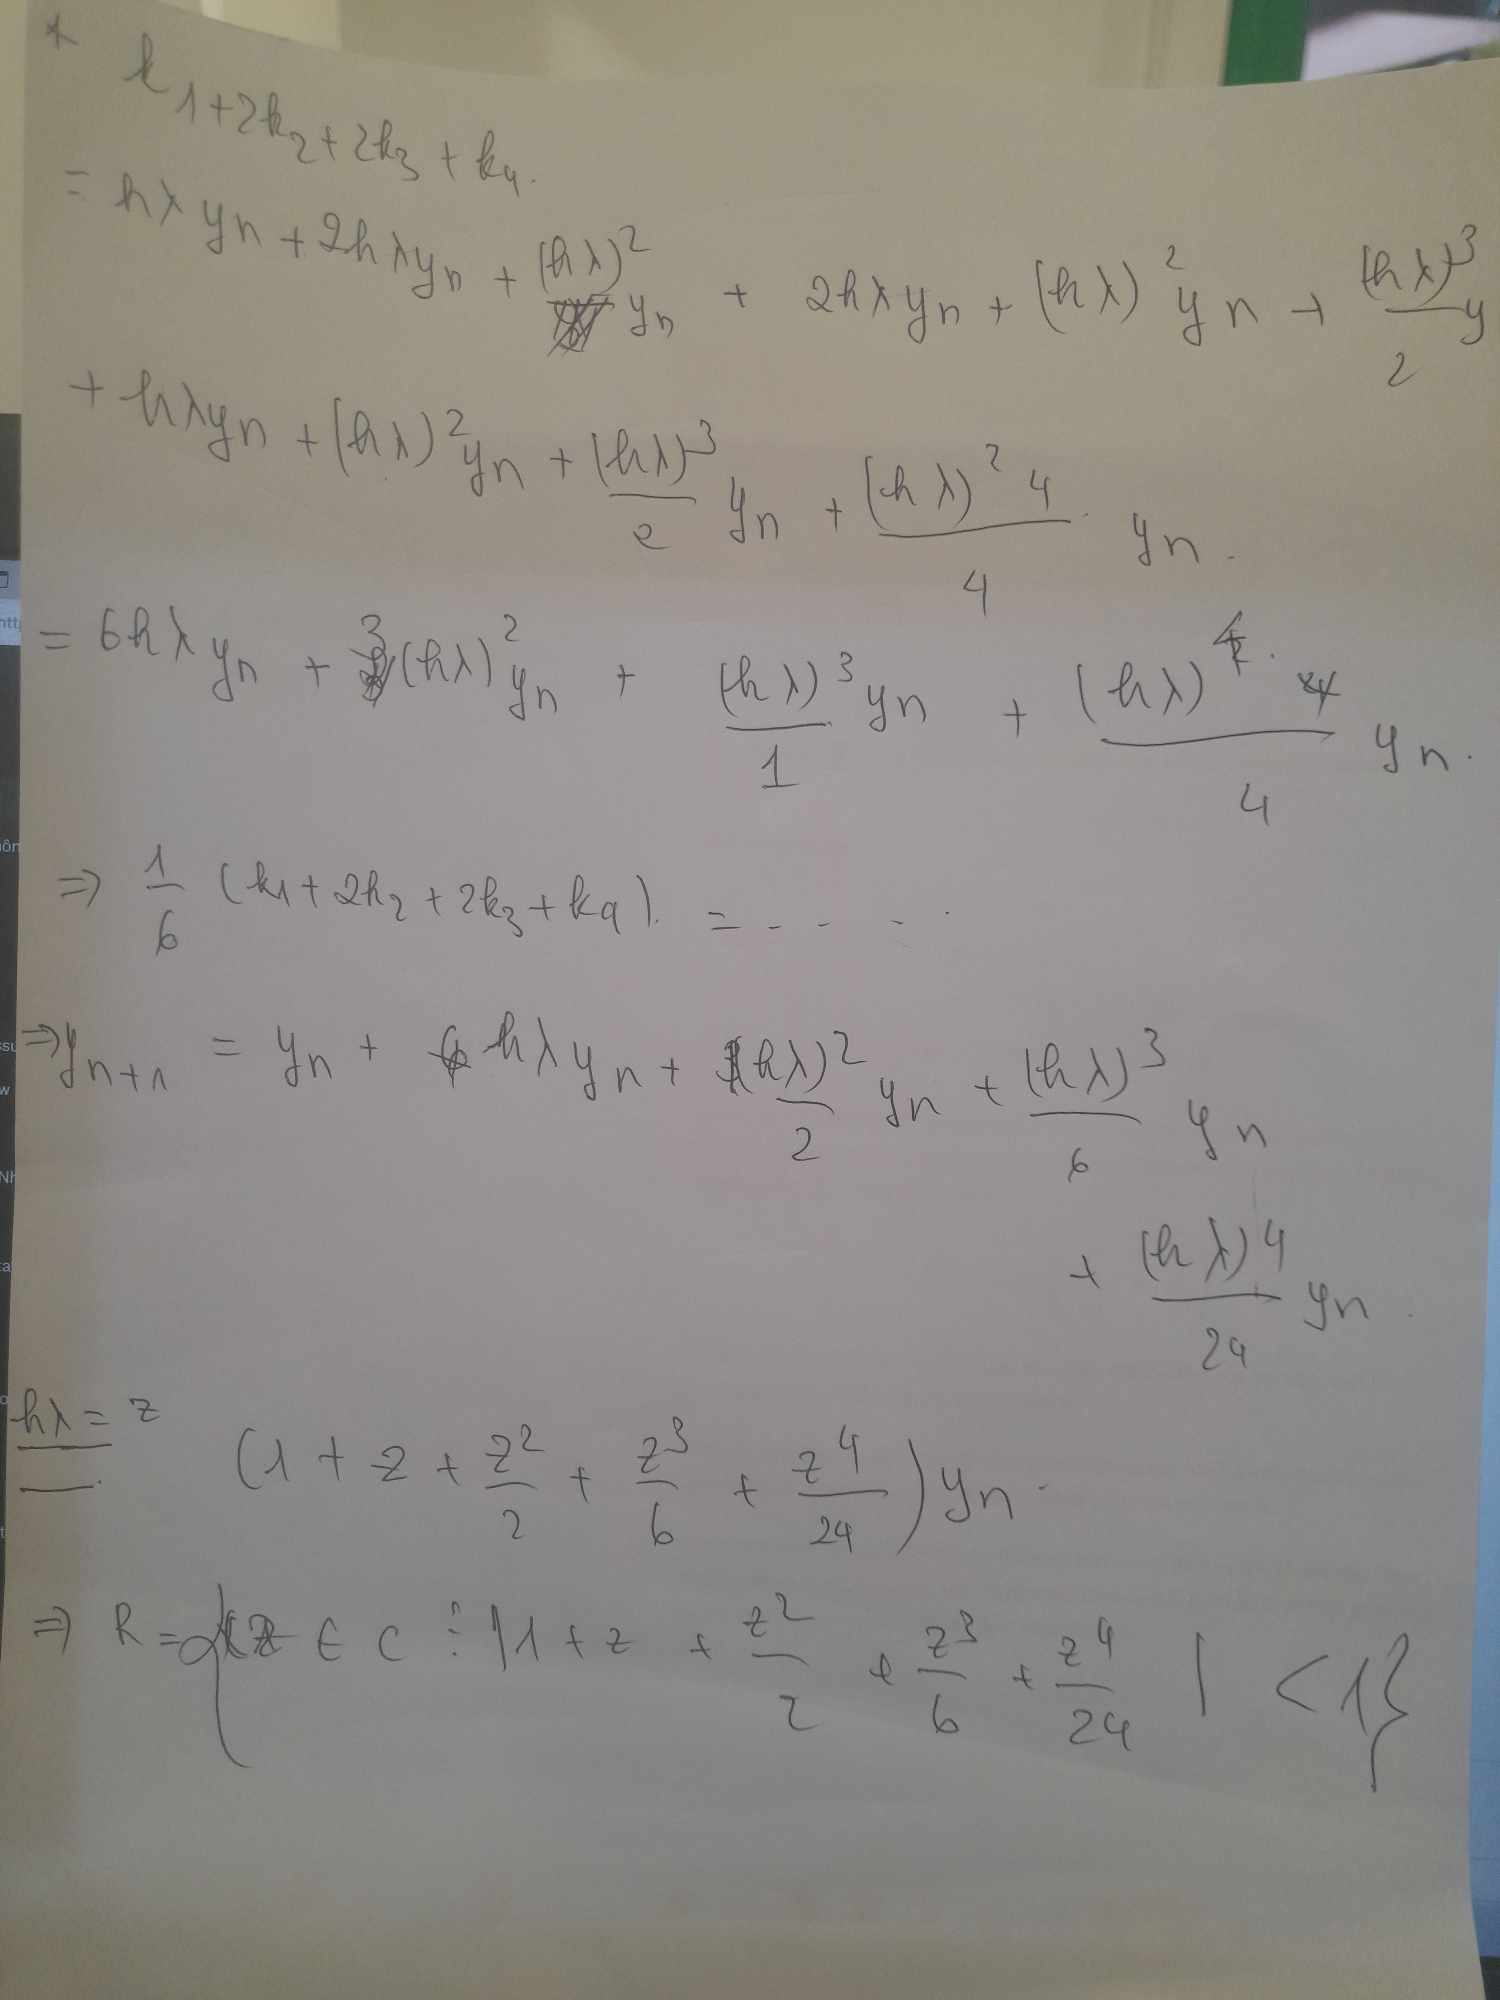 * k₁+2k₂+2k₃+k₄.
= hλyₙ + 2hλyₙ + (hλ)²yₙ + 2hλyₙ + (hλ)²yₙ + (hλ)³/2 y
+ hλyₙ + (hλ)²yₙ + (hλ)³/2 yₙ + (hλ)² 4/4 yₙ.
= 6hλyₙ + 3(hλ)²yₙ + (hλ)³/1 yₙ + (hλ)⁴/4 yₙ.
⇒ 1/6 (k₁+2k₂+2k₃+k₄). = - - - .
⇒ yₙ₊₁ = yₙ + hλyₙ + (hλ)²/2 yₙ + (hλ)³/6 yₙ
+ (hλ)⁴/24 yₙ.
hλ = z (1 + z + z²/2 + z³/6 + z⁴/24) yₙ.
⇒ R = {z ∈ C : |1 + z + z²/2 + z³/6 + z⁴/24| < 1}